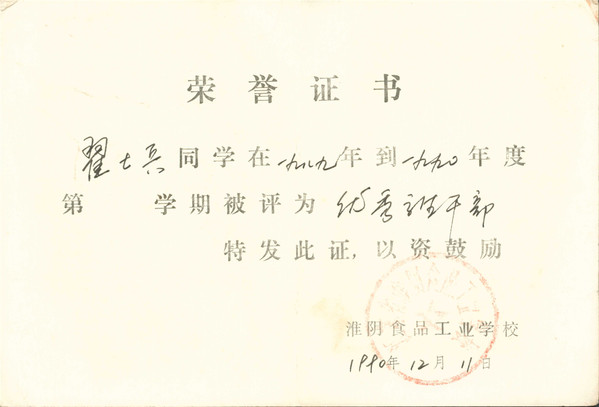 荣誉证书
翟士兵同学在一九八九年到一九九〇年度
第 学期被评为 优秀 干部
特发此证,以资鼓励
淮阴食品工业学校
1990年12月11日